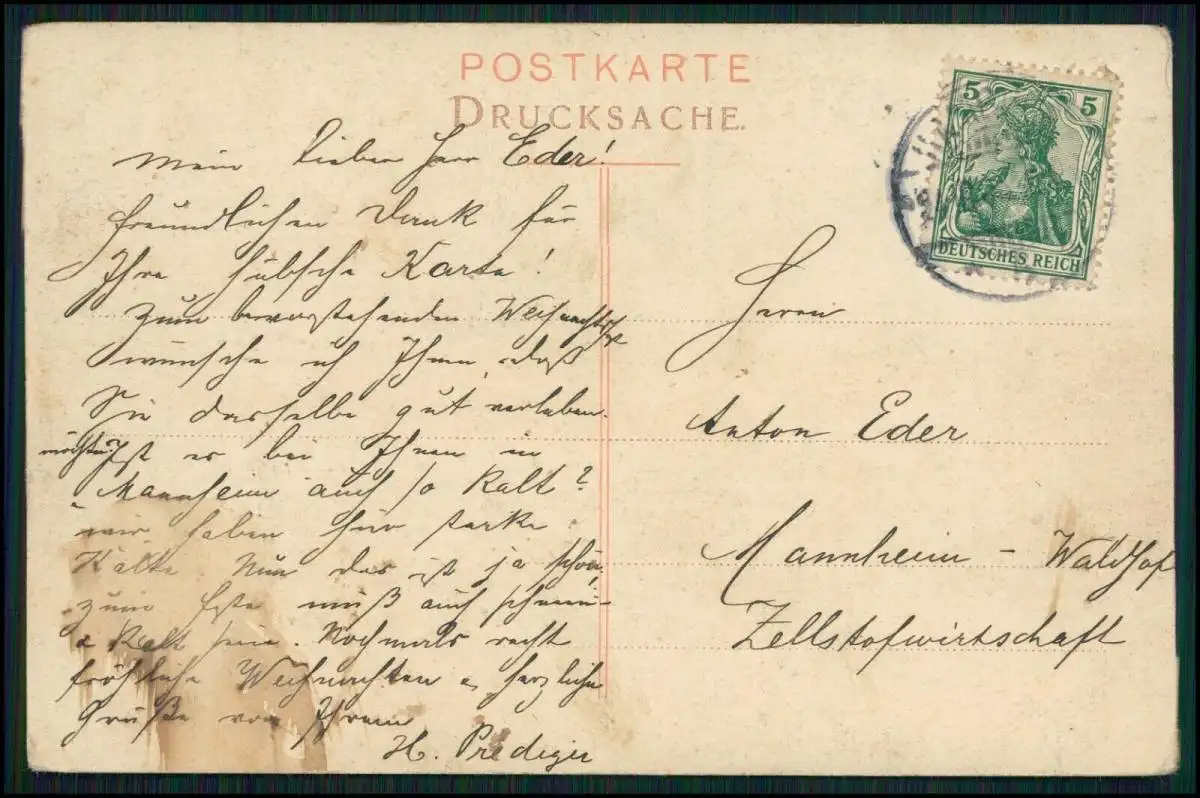 POSTKARTE
DRUCKSACHE.
Mein lieber Herr Eder!
Freundlichen Dank für
Ihre hübsche Karte!
Zum bevorstehenden Weihnachtsfest
wünsche ich Ihnen, daß
Sie dasselbe gut verleben
möchten. Ist es bei Ihnen in
Mannheim auch so kalt?
Wir haben hier starke
Kälte. Nun das ist ja schön,
zum Feste muß auch Schnee
u. Kält sein. Nochmals recht
fröhliche Weihnachten u. herzliche
Grüße von Ihrem
H. Prediger
5 5
DEUTSCHES REICH
Herrn
Anton Eder
Mannheim - Waldhof
Zellstofwirtschaft